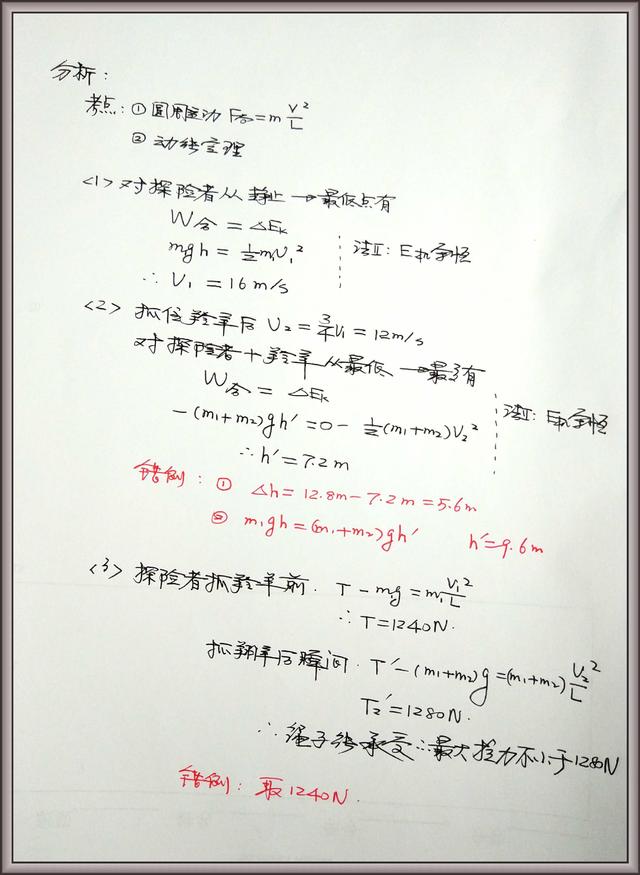 分析：
考点：① 圆周运动 F合=m v²/L
② 动能定理
<1> 对探险者从静止→最低点有
W合 = ΔEk
mgh = ½mv₁² 法Ⅱ：E机守恒
∴ V₁ = 16m/s
<2> 抓住羚羊后 V₂ = ¾V₁ = 12m/s
对探险者+羚羊从最低→最高有
W合 = ΔEk
-(m₁+m₂)gh′ = 0 - ½(m₁+m₂)V₂² 法Ⅱ：E机守恒
∴ h′ = 7.2m
错例：① Δh = 12.8m - 7.2m = 5.6m
② m₁gh = (m₁+m₂)gh′ h′=9.6m
<3> 探险者抓羚羊前. T - m₁g = m₁ V₁²/L
∴ T = 1240N.
抓羚羊后瞬间. T′ - (m₁+m₂)g = (m₁+m₂) V₂²/L
T₂′ = 1280N.
∴ 绳子能承受的最大拉力不小于1280N
错例：取1240N.